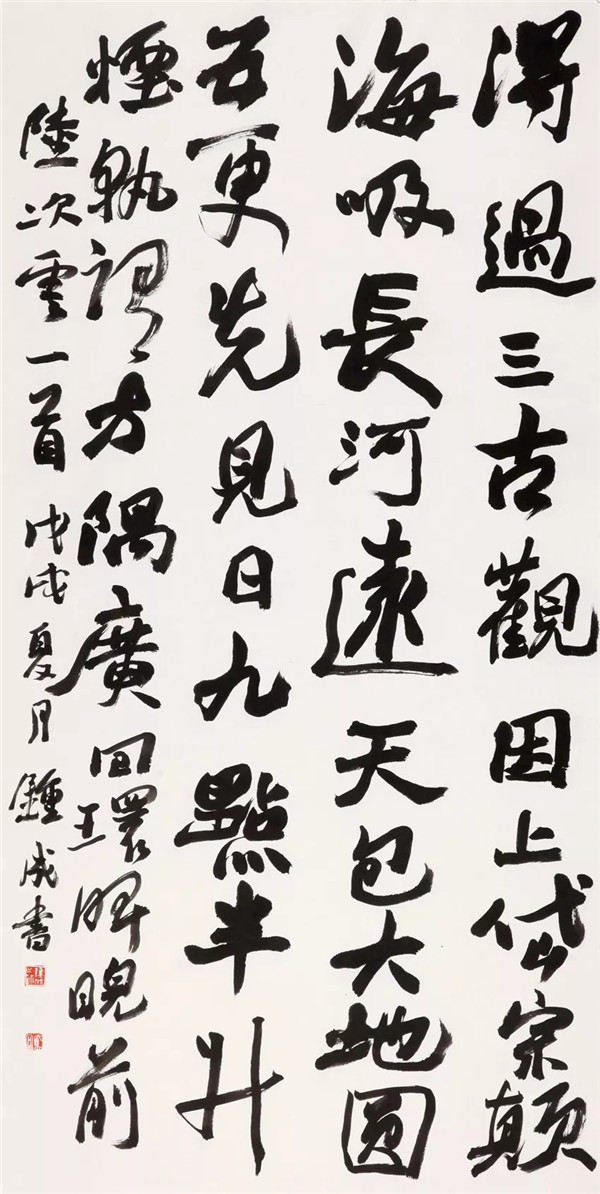 得過三古觀因上岱宗顛
海吸長河遠天包大地圓
五更先見日九點半升
煙孰謂方隅廣回環睥睨前
陸次雲一首 戊戌夏月 鍾成書